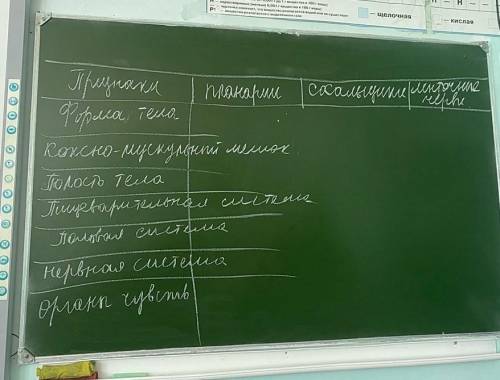 щелочная
кислая
Признаки планарии сосальщики ленточные черви
Форма тела
Кожно-мускульный мешок
Полость тела
Пищеварительная система
Половая система
нервная система
органы чувств